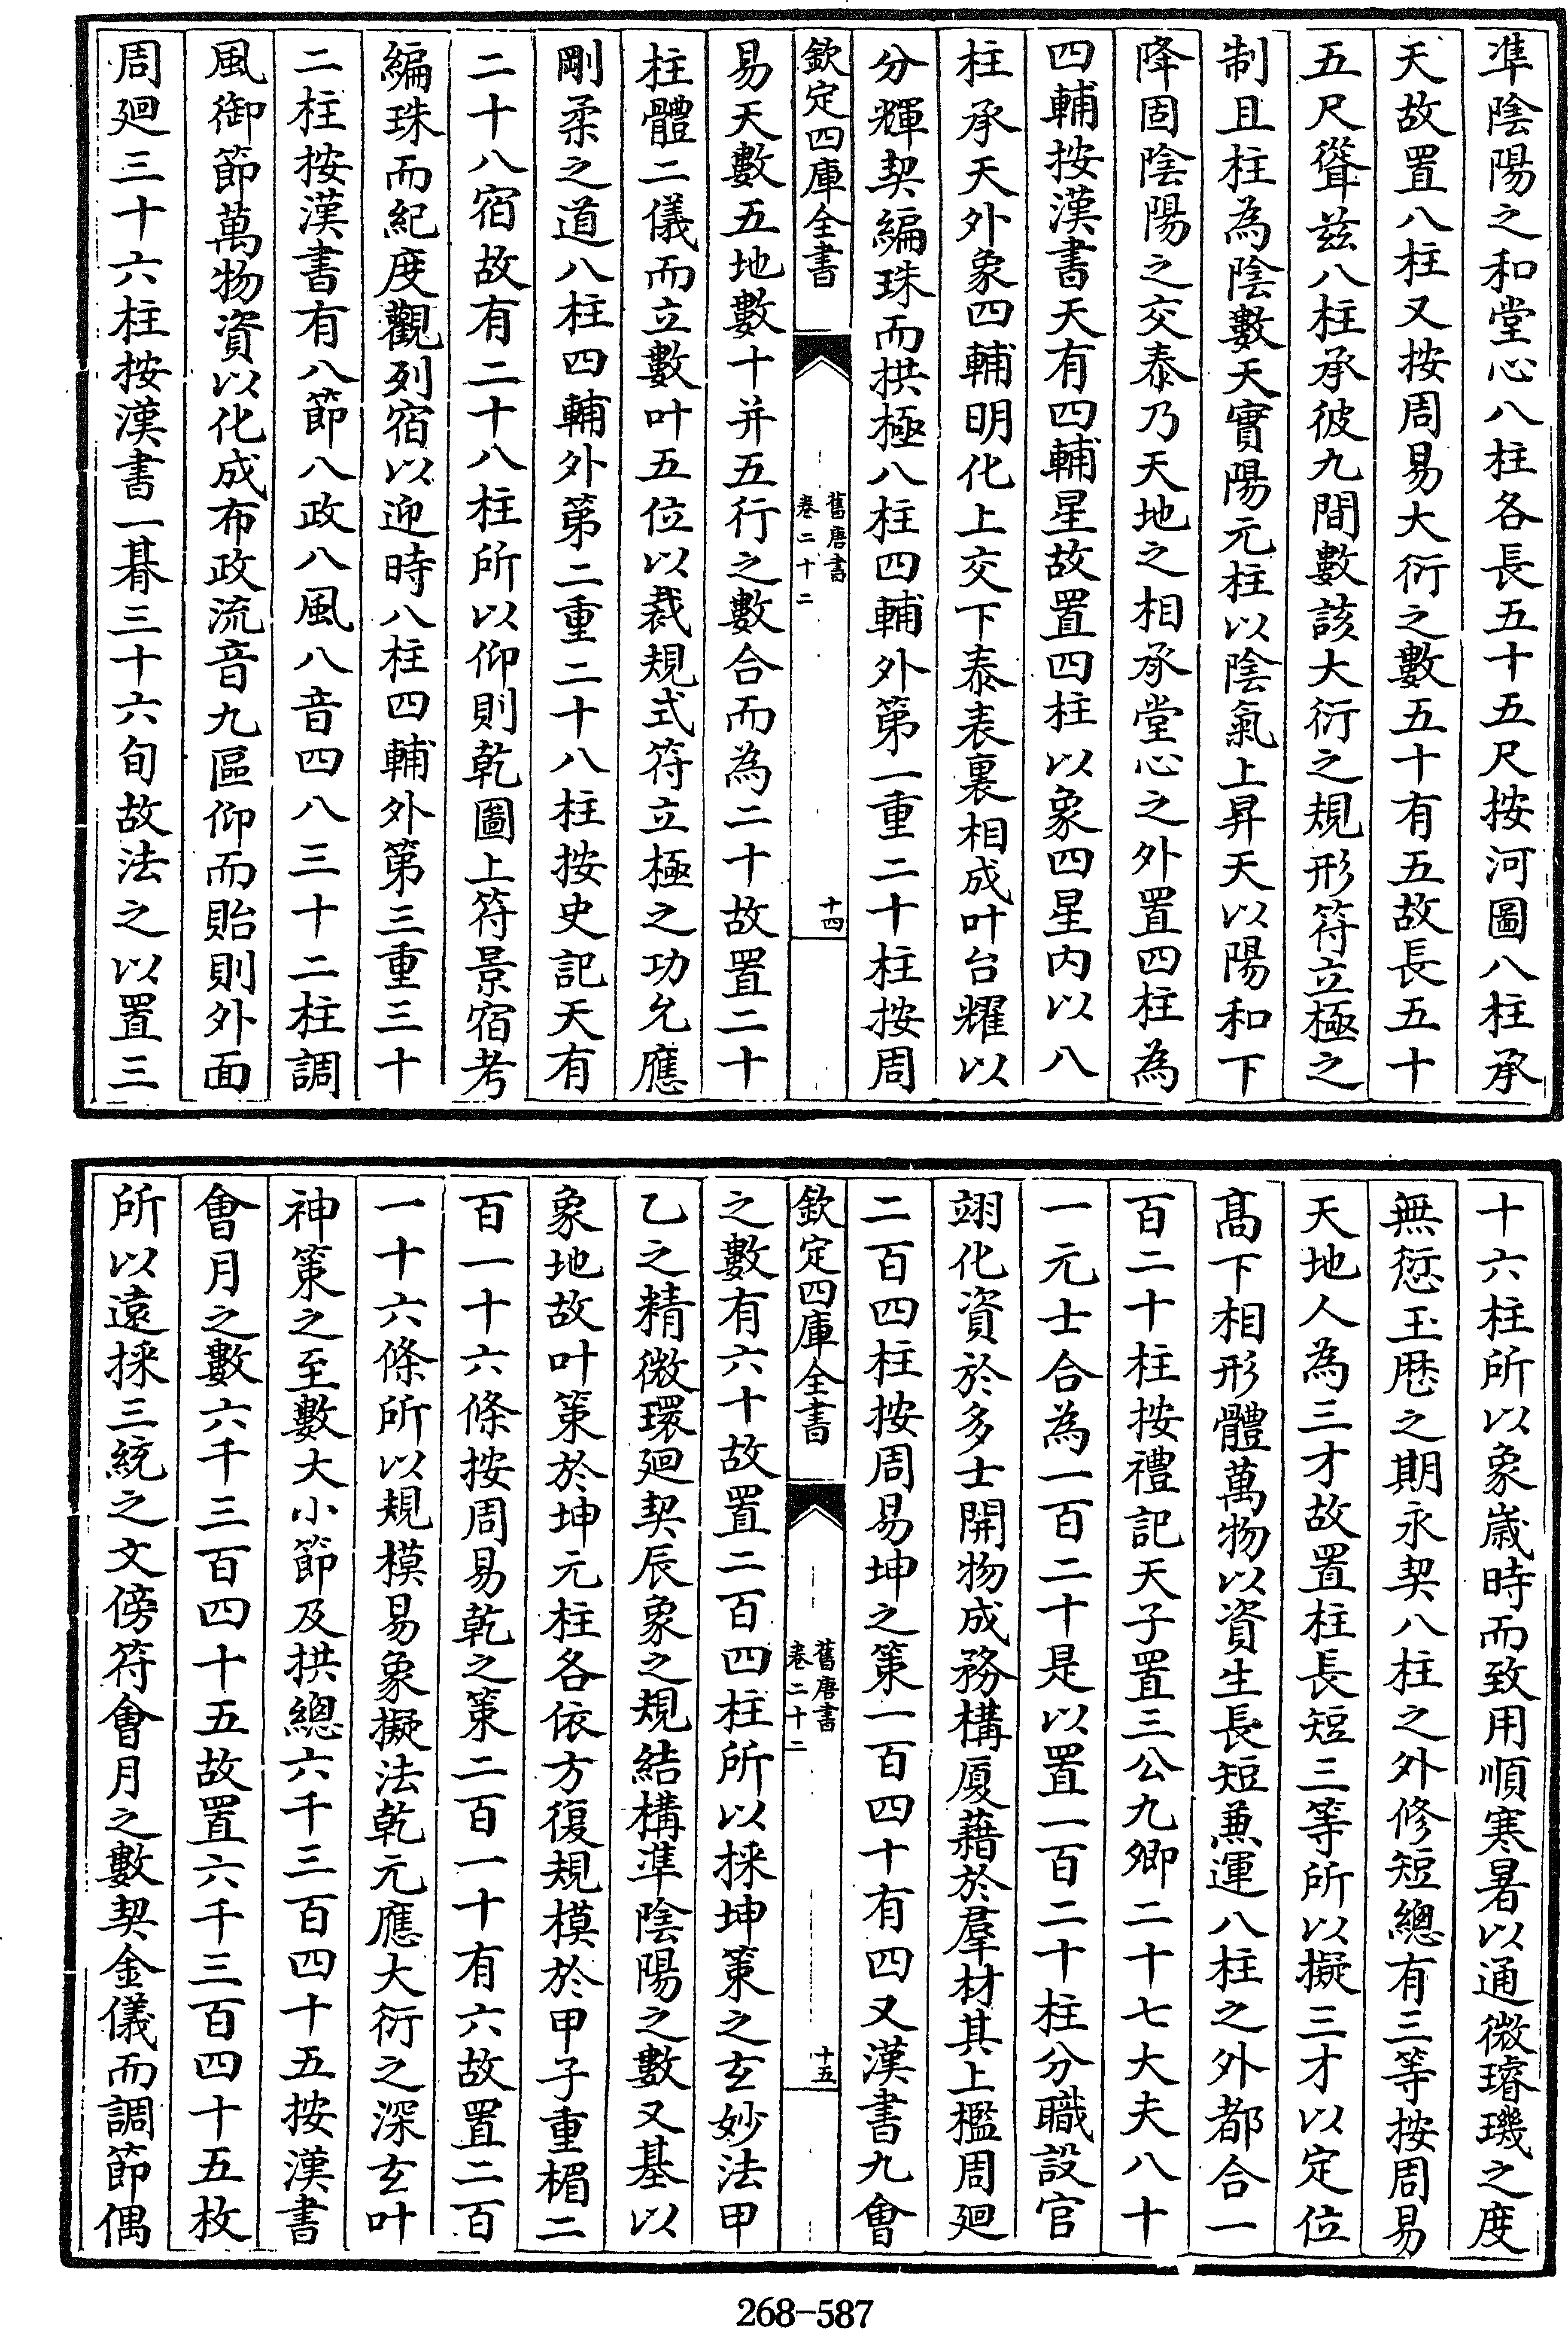 準陰陽之和堂心八柱各長五十五尺按河圖八柱承
天故置八柱又按周易大衍之數五十有五故長五十
五尺聳兹八柱承彼九間數該大衍之規形符立極之
制且柱為陰數天實陽元柱以陰氣上昇天以陽和下
降固陰陽之交泰乃天地之相承堂心之外置四柱為
四輔按漢書天有四輔星故置四柱以象四星内以八
柱承天外象四輔明化上交下泰表裏相成叶台耀以
分輝契編珠而拱極八柱四輔外第一重二十柱按周
欽定四庫全書
舊唐書
卷二十二
十四
易天數五地數十并五行之數合而為二十故置二十
柱體二儀而立數叶五位以裁規式符立極之功允應
剛柔之道八柱四輔外第二重二十八柱按史記天有
二十八宿故有二十八柱所以仰則乾圖上符景宿考
編珠而紀度觀列宿以迎時八柱四輔外第三重三十
二柱按漢書有八節八政八風八音四八三十二柱調
風御節萬物資以化成布政流音九區仰而貽則外面
周廻三十六柱按漢書一朞三十六旬故法之以置三
十六柱所以象歲時而致用順寒暑以通微璿璣之度
無愆玉厯之期永契八柱之外修短總有三等按周易
天地人為三才故置柱長短三等所以擬三才以定位
髙下相形體萬物以資生長短兼運八柱之外都合一
百二十柱按禮記天子置三公九卿二十七大夫八十
一元士合為一百二十是以置一百二十柱分職設官
翊化資於多士開物成務構厦藉於羣材其上檻周廻
二百四柱按周易坤之策一百四十有四又漢書九會
欽定四庫全書
舊唐書
卷二十二
十五
之數有六十故置二百四柱所以採坤策之玄妙法甲
乙之精微環廻契辰象之規結構準陰陽之數又基以
象地故叶策於坤元柱各依方復規模於甲子重楣二
百一十六條按周易乾之策二百一十有六故置二百
一十六條所以規模易象擬法乾元應大衍之深玄叶
神策之至數大小節及拱總六千三百四十五按漢書
會月之數六千三百四十五故置六千三百四十五枚
所以遠採三統之文傍符會月之數契金儀而調節偶
268-587